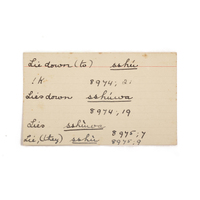 Lie down (to) sshú
: K 8974; 21
Lies down sshúwa
8974; 19
Lies sshúwa 8975; 7
Lie, (they) sshú 8975; 9